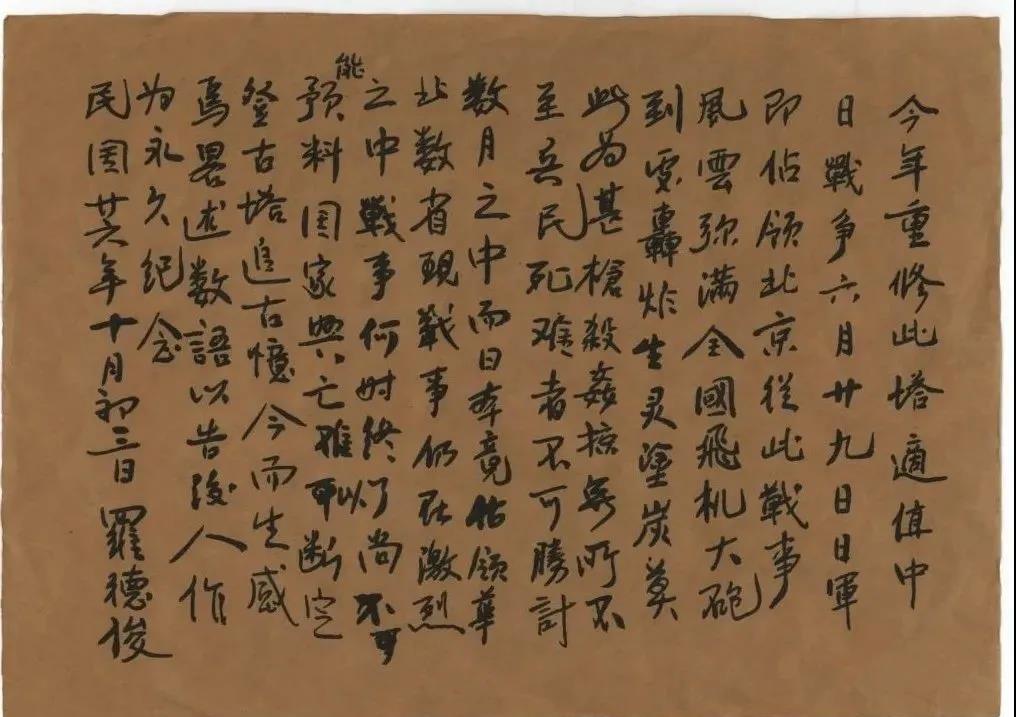 今年重修此塔適值中
日戰争六月廿九日日軍
即佔领北京從此戰事
風雲弥满全國飛机大砲
到處轟炸生灵塗炭莫
此为甚槍殺姦掠無所不
至兵民死难者不可勝計
数月之中而日本竟佔领華
北数省現戰事仍在激烈
之中戰事何时终了尚不可
能
预料国家興亡难以断定
登古塔追古憶今而生感
焉畧述数語以告後人作
为永久纪念
民国廿六年十月初三日羅德俊